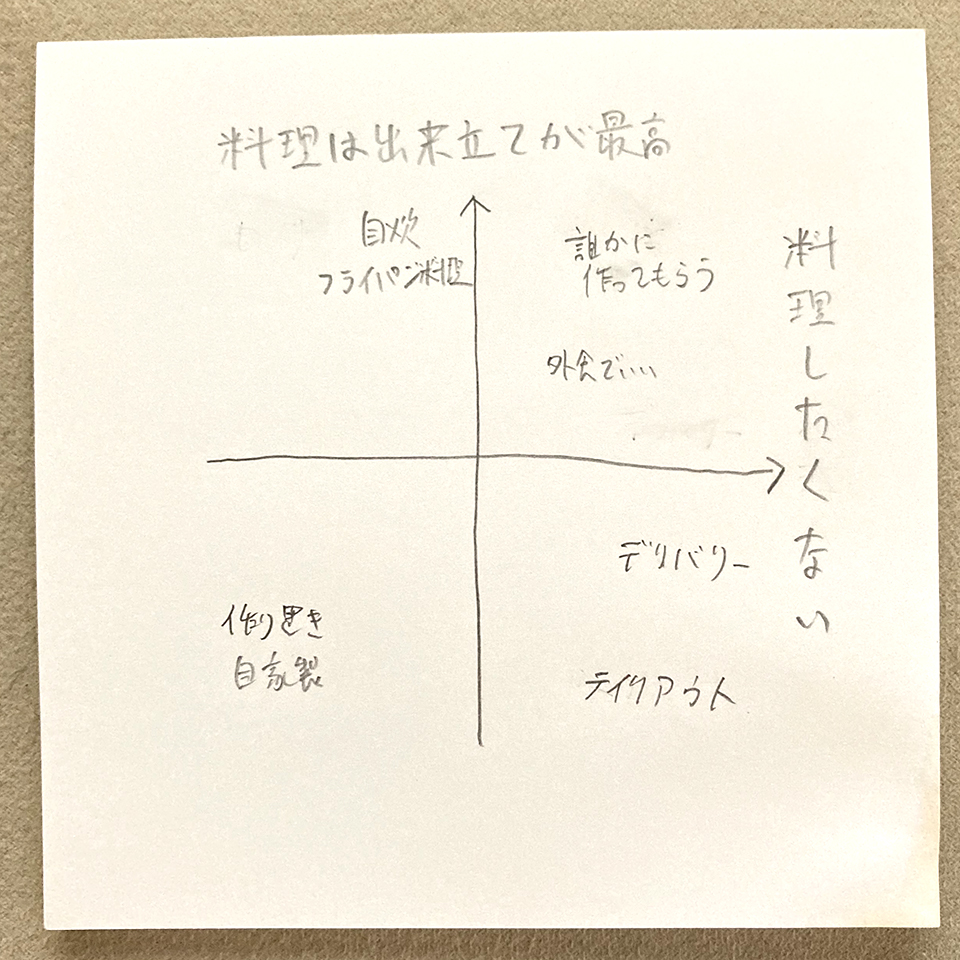 料理は出来立てが最高
自炊
フライパン料理
誰かに
作ってもらう
外食でいい
料理したくない
デリバリー
作り置き
自家製
テイクアウト